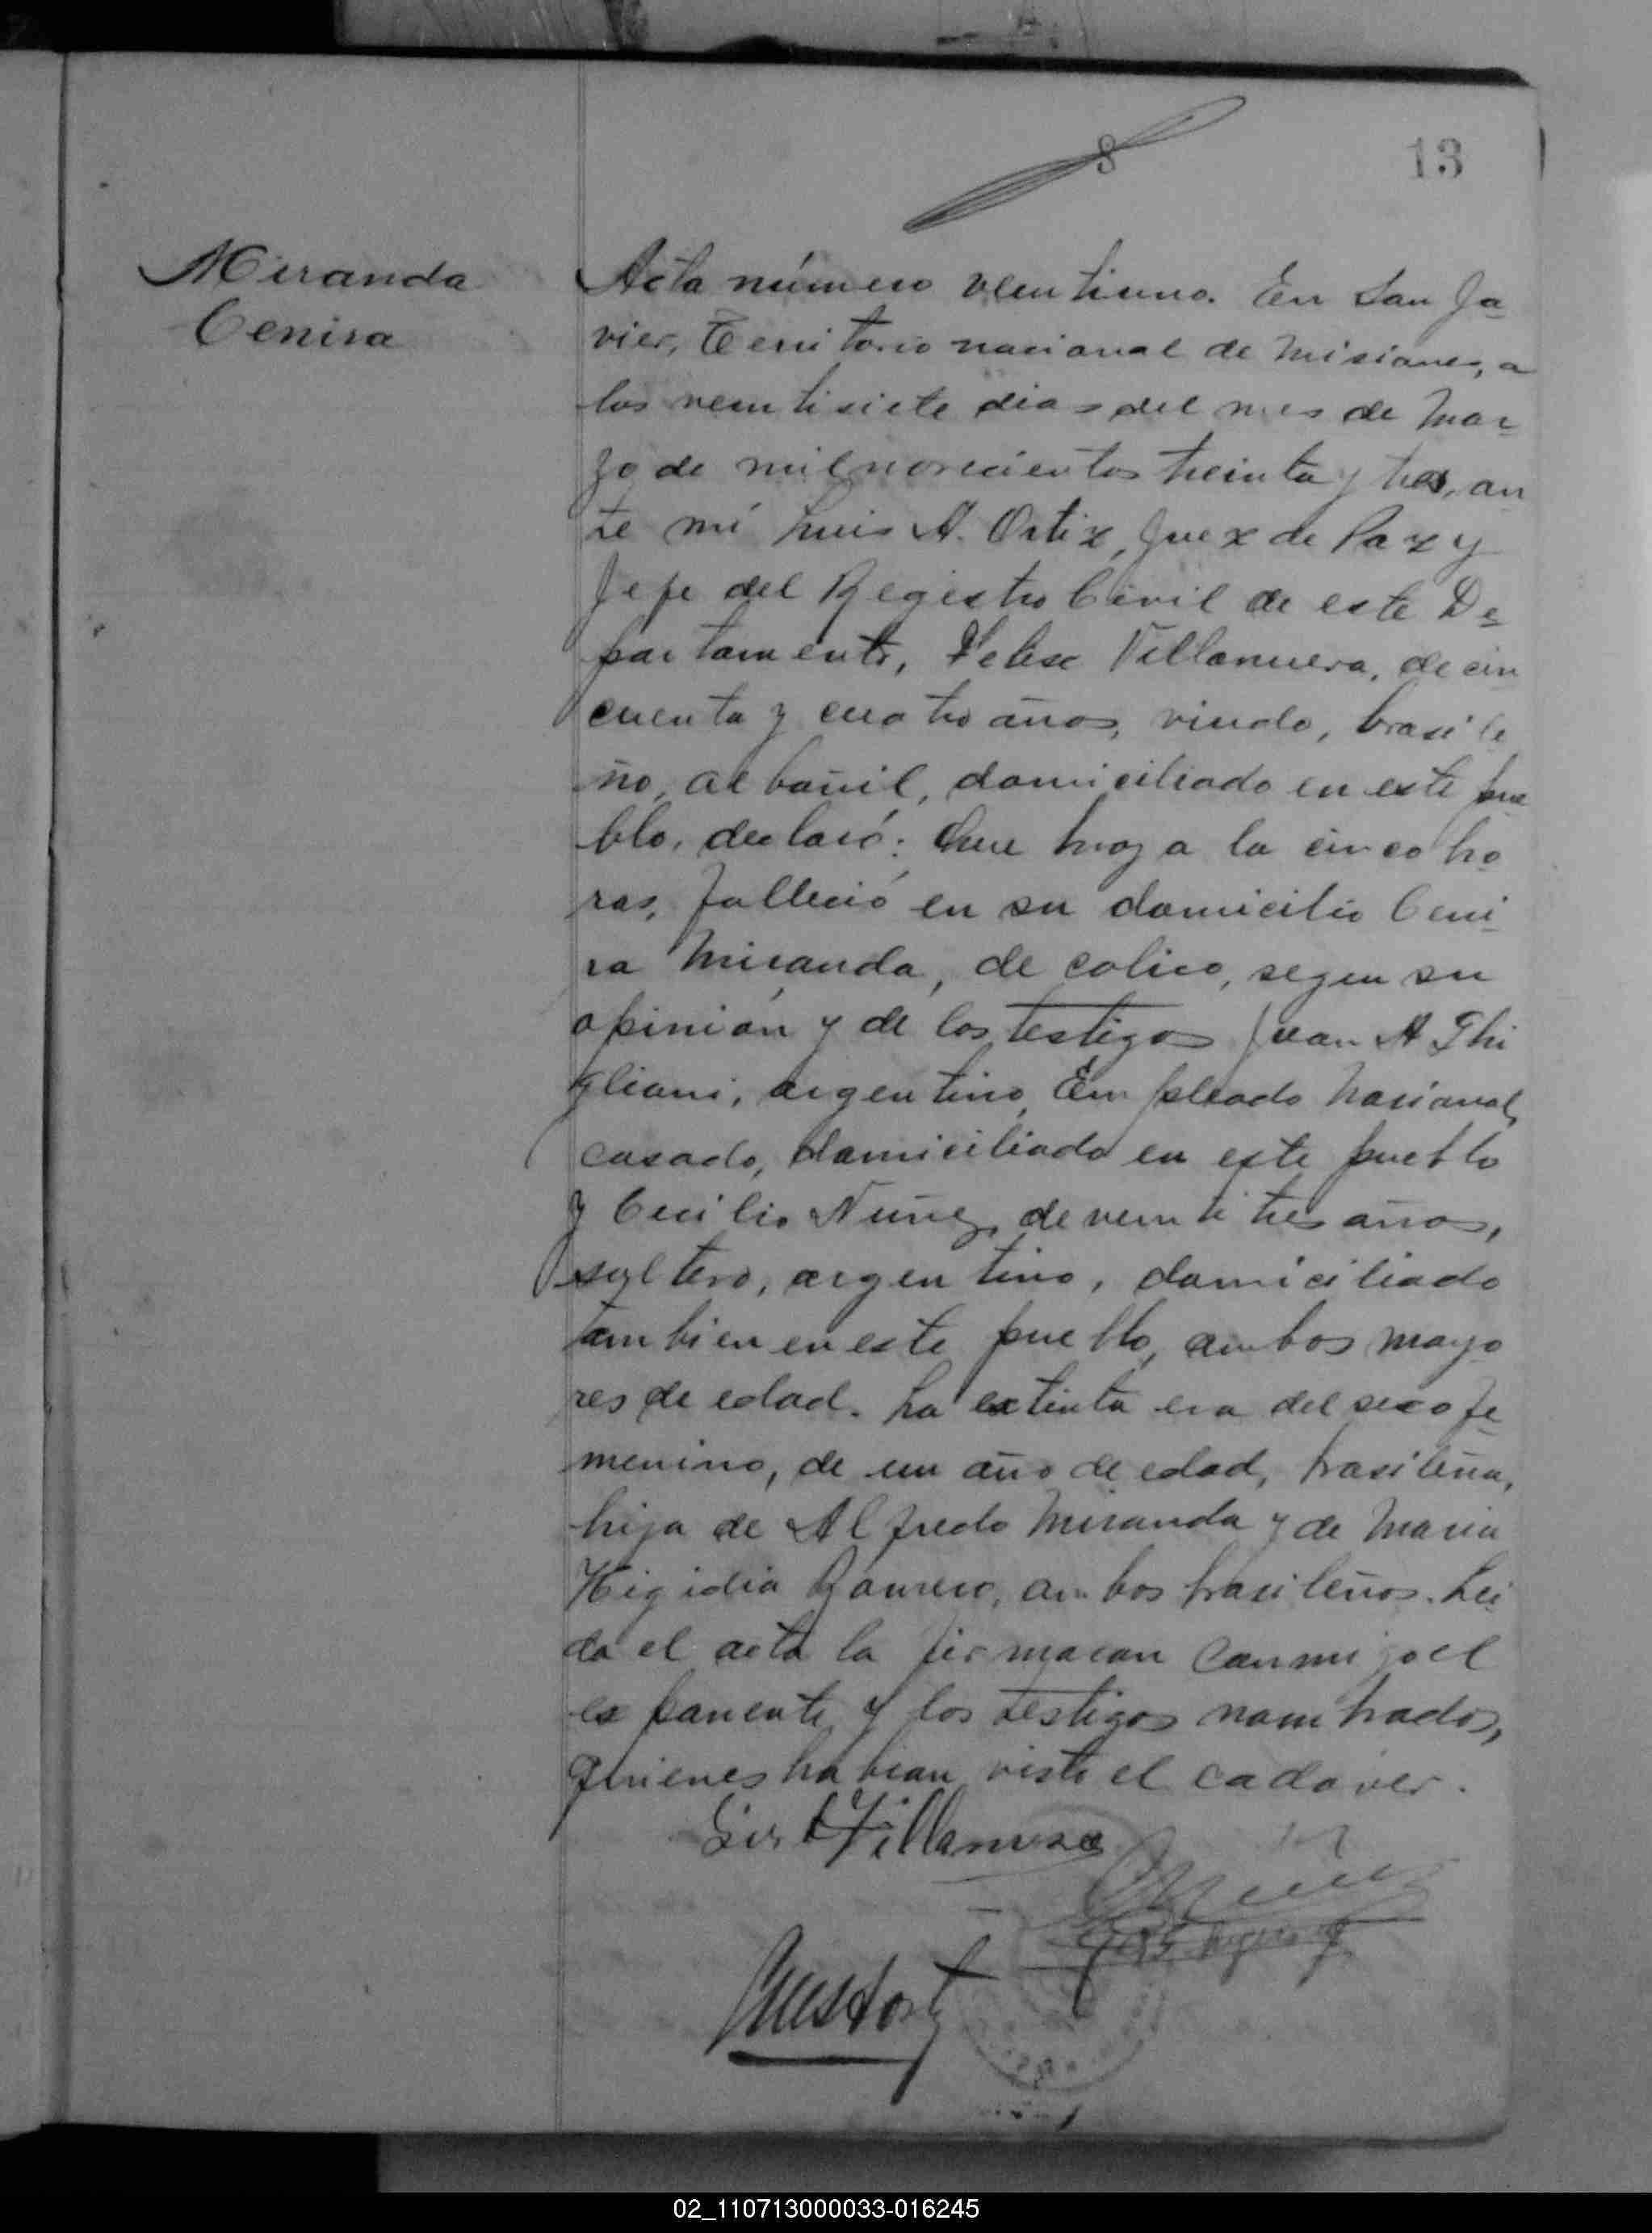 13
Miranda
Cenira
Acta número veintiuno. En San Ja-
vier, Territorio nacional de Misiones, a
los veintisiete dias del mes de Mar-
zo de mil novecientos treinta y tres, an
te mí Luis A. Ortiz, Juez de Paz y
Jefe del Registro Civil de este De-
partamento, Villanueva, de cin
cuenta y cuatro años, viudo, brasile
ño, albañil, domiciliado en este pue
blo, declaró: Que hoy a la cinco ho-
ras, falleció en su domicilio Ceni-
ra Miranda, de colico, segun su
opinión y de los testigos Juan A Ghi
gliani, argentino, Empleado Nacional,
casado, domiciliado en este pueblo
y Cecilio Nuñez, de veintitres años,
soltero, argentino, domiciliado
tambien en este pueblo, ambos mayo
res de edad. La extinta era del sexo fe-
menino, de un año de edad, brasileña,
hija de Alfredo Miranda y de Maria
Higidia Romero, ambos brasileños. Lei-
da el acta la firmaran conmigo el
exponente y los testigos nombrados,
quienes habian visto el cadáver.
Villanueva
02_110713000033-016245